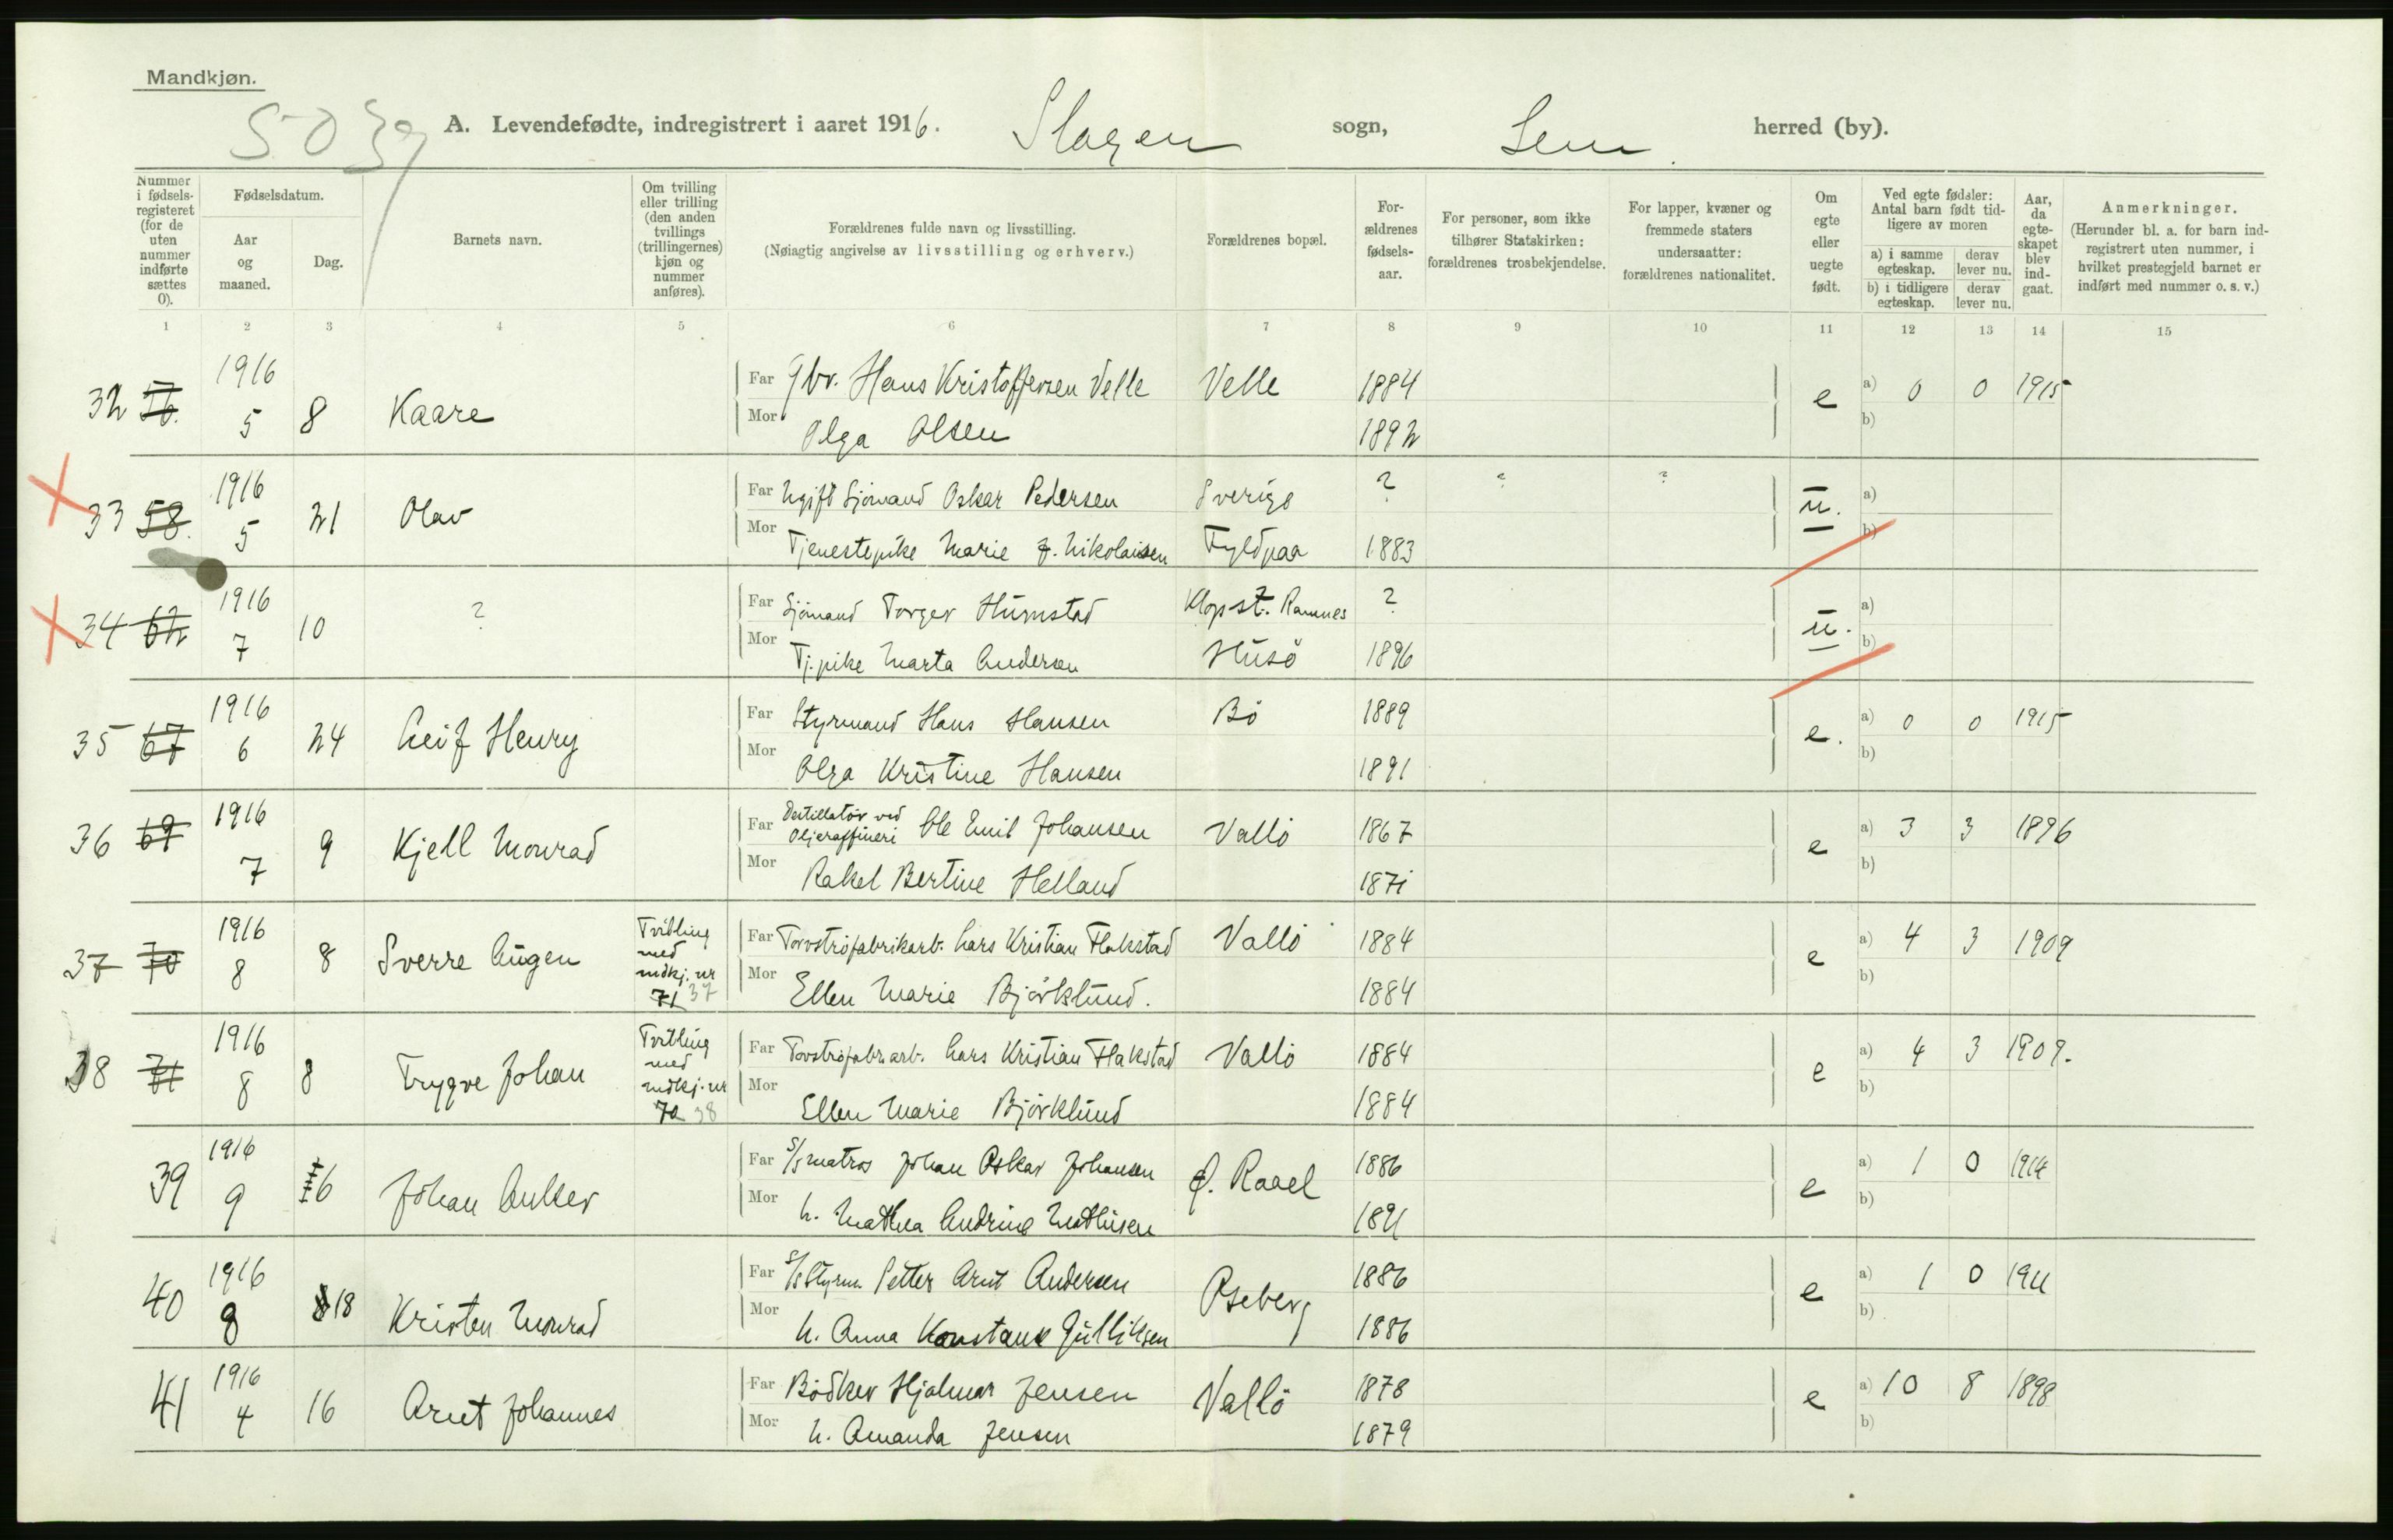 Mandkjøn.
A. Levendefødte, indregistrert i aaret 1916. Slagen sogn, Sem. herred (by).
Nummer i fødselsregisteret (for de uten nummer indførte sættes 0).
Fødselsdatum.
Aar og maaned.
Dag.
Barnets navn.
Om tvilling eller trilling (den anden tvillings (trillingernes) kjøn og nummer anføres).
Forældrenes fulde navn og livsstilling.
(Nøiagtig angivelse av livsstilling og erhverv.)
Forældrenes bopæl.
Forældrenes fødselsaar.
For personer, som ikke tilhører Statskirken: forældrenes trosbekjendelse.
For lapper, kvæner og fremmede staters undersaatter: forældrenes nationalitet.
Om egte eller uegte født.
Ved egte fødsler: Antal barn født tidligere av moren
a) i samme egteskap. derav lever nu.
b) i tidligere egteskap. derav lever nu.
Aar, da egteskapet blev indgaat.
Anmerkninger.
(Herunder bl. a. for barn indregistrert uten nummer, i hvilket prestegjeld barnet er indført med nummer o. s. v.)
1 2 3 4 5 6 7 8 9 10 11 12 13 14 15
32 56. 1916 5 8 Kaare Far Gbr. Hans Kristoffersen Velle Velle 1884 e a) 0 0 1915
Mor Olga Olsen 1892 b)
33 58. 1916 5 21 Olav Far Ugift Sjömand Oskar Pedersen Sverige ? ? ? u. a)
Mor Tjenestepike Marie J. Nikolaisen Fyldpaa 1883 b)
34 62 1916 7 10 ? Far Sjömand Torger Humstad Klopst. Ramnes ? u. a)
Mor Tj.pike Marta Andersen Husö 1896 b)
35 67 1916 6 24 Leif Henry Far Styrmand Hans Hansen Bö 1889 e. a) 0 0 1915
Mor Olga Kristine Hansen 1891 b)
36 69 1916 7 9 Kjell Monrad Far Destillatör ved Oljeraffineri Ole Emil Johansen Vallö 1867 e a) 3 3 1896
Mor Rakel Bertine Helland 1871 b)
37 70 1916 8 8 Sverre Augen Tvilling med mdkj. nr 71 37 Far Torvströfabrikarb. Lars Kristian Flakstad Vallö 1884 e a) 4 3 1909
Mor Ellen Marie Björklund. 1884 b)
38 71 1916 8 8 Trygve Johan Tvilling med mdkj. nr 70 38 Far Torvströfabr.arb. Lars Kristian Flakstad Vallö 1884 e a) 4 3 1909.
Mor Ellen Marie Björklund 1884 b)
39 1916 9 6 Johan Anker Far S/S matros Johan Oskar Johansen Ø. Raael 1886 e a) 1 0 1914
Mor h. Mathea Andrine Mathisen 1891 b)
40 1916 8 18 Kristen Monrad Far S/S Styrm. Petter Arnt Andersen Oseberg 1886 e a) 1 0 1911
Mor h. Anna Konstanse Gulliksen 1886 b)
41 1916 4 16 Arnt Johannes Far Bödker Hjalmar Jensen Vallö 1878 e a) 10 8 1898
Mor h. Amanda Jensen 1879 b)